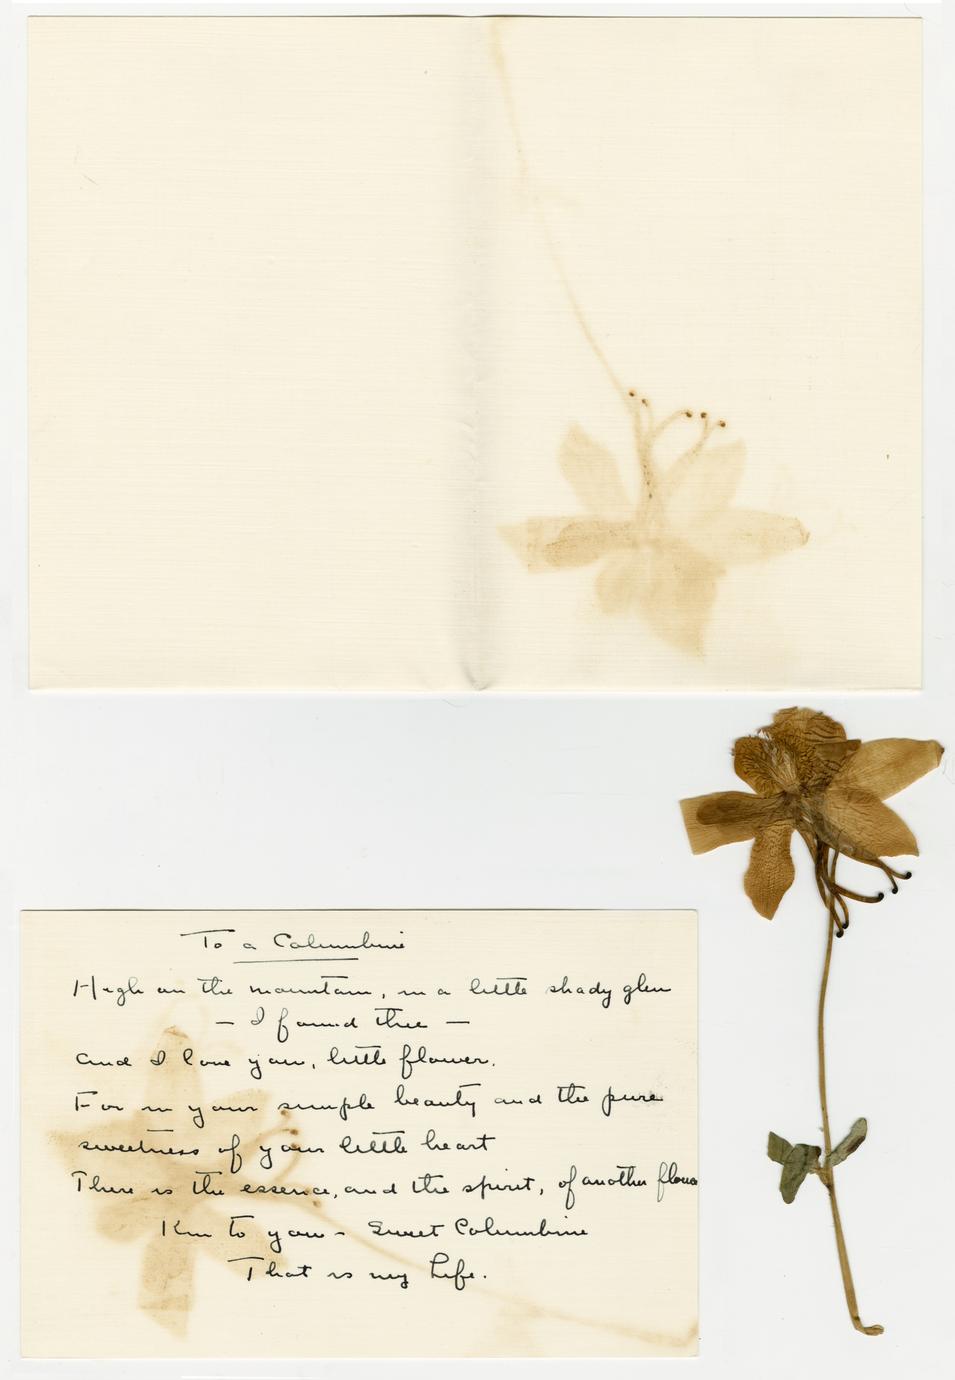 To a Columbine
High on the mountain, in a little shady glen
— I found thee —
And I love you, little flower.
For in your simple beauty and the pure
sweetness of your little heart
There is the essence, and the spirit, of another flower
Kin to you - Sweet Columbine
That is my Life.